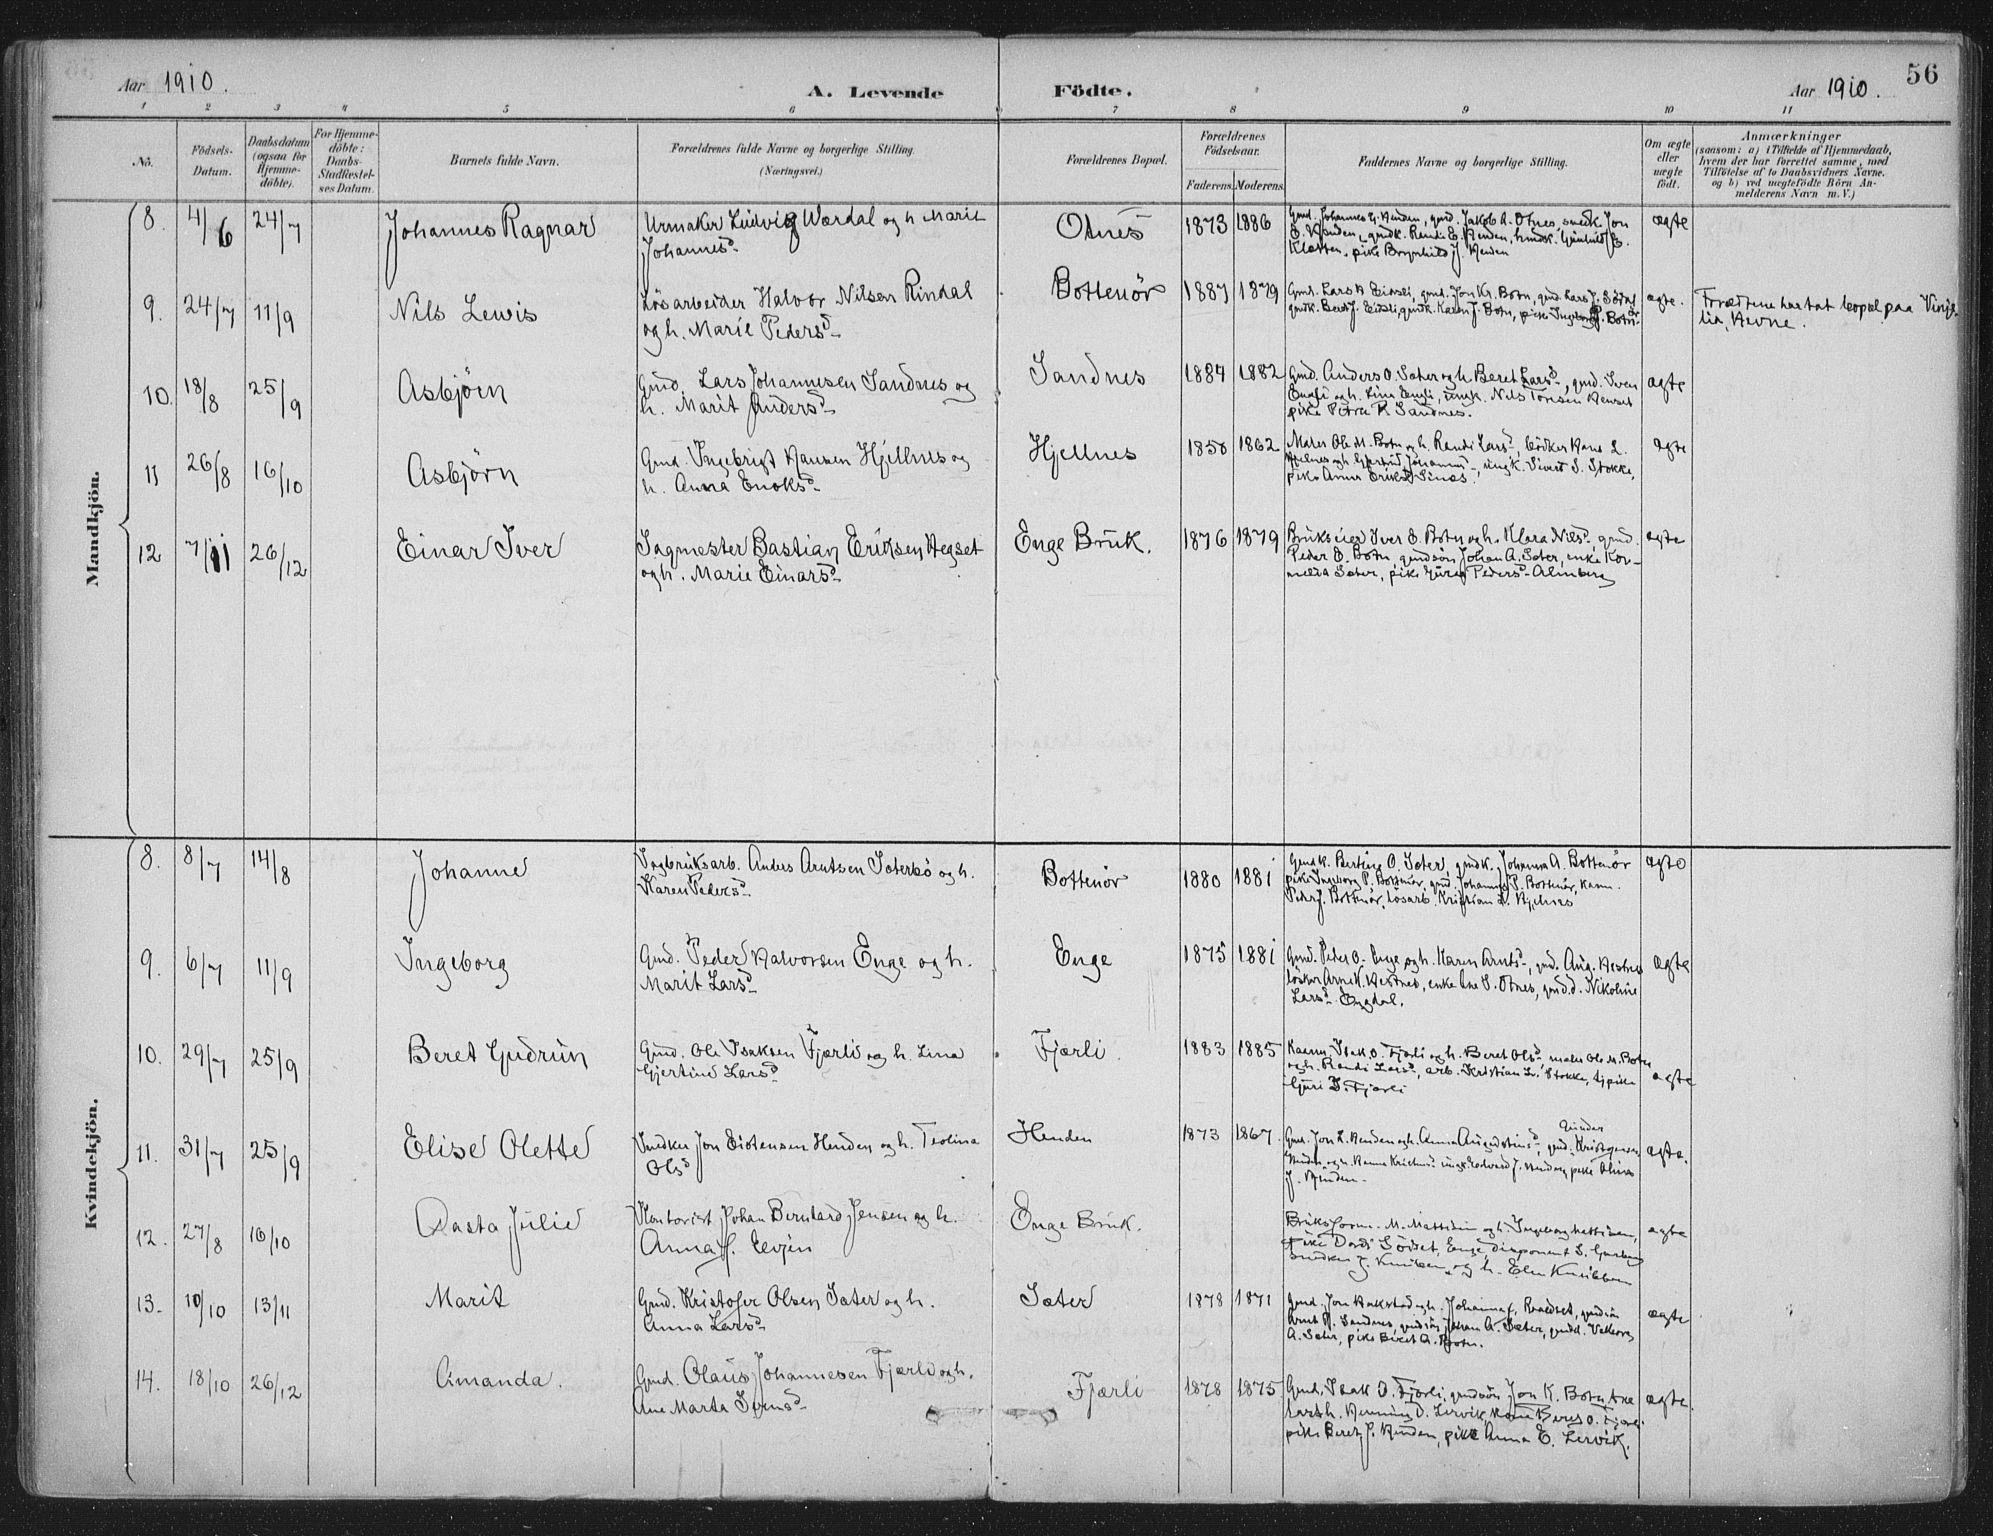 56
Aar 1910. A. Levende Födte. Aar 1910.
1 2 3 4 5 6 7 8 9 10 11
Nô. Födsels-Datum. Daabsdatum (ogsaa for Hjemme-döbte). For Hjemme-döbte: Daabs-Stadfæstel-ses Datum. Barnets fulde Navn. Forældrenes fulde Navne og borgerlige Stilling. (Næringsvei.) Forældrenes Bopæl. Forældrenes Födselsaar. Faderens. Moderens. Faddernes Navne og borgerlige Stilling. Om ægte eller uægte födt. Anmærkninger
(saasom: a) i Tilfælde af Hjemmedaab,
hvem der har forrettet samme, med
Tilföielse af to Daabsvidners Navne.
og b) ved uægtefödte Börn An-
melderens Navn m. V.)
Mandkjön.
8. 4/6 24/7 Johannes Ragnar Urmaker Ludvig Wærdal og h. Marit
Johannesd. Otnes 1873 1886 Gmd. Johannes Henden, gmd. Jakob A. Otnes, smedk. Jon
ægte
9. 24/7 11/9 Nils Lewis Lösarbeider Halvor Nilsen Rindal
og h. Marie Pedersd. Bottenör 1887 1879 Gmd. Lars Eidsli, gmd. Jon Kr. Botn, gmd. Lars J.
gmdk. Beret J. Eidsli, gmdk. Karen J. Botn, pike Ingeborg P. Botn. ægte. Forældrene har tat bopæl paa Vinje-
lia, Hevne.
10. 18/8 25/9 Asbjörn Gmd. Lars Johannesen Sandnes og
h. Marit Andersd. Sandnes 1884 1882 Gmd. Anders O. Sæter og h. Beret Larsd., gmd. Sven
Engli og h. Lina Engli, ungk. Nils Tonsen Henset
pike Petra R. Sandnes. ægte
11 26/8 16/10 Asbjörn Gmd. Ingebrigt Hansen Hjellnes og
h. Anna Enoksd. Hjellnes 1850 1862 Maler Ole M. Botn og h. Randi Larsd., bödker Hans L.
Hjellnes og h. Gjertrud Johannesd., ungk. Sivert S. Stokke,
pike Anna Eriksd. ægte
12 7/11 26/12 Einar Iver Sagmester Bastian Eriksen Hegset
og h. Marie Einarsd. Enge Bruk. 1876 1879 Brukseier Iver E. Botn og h. Klara Nilsd., gmd.
Peder E. Botn, gmdsön Johan A. Sæter, enke Kor-
nelia Sæter, pike Guru Pedersd. Almberg ægte
Kvindekjön.
8. 8/7 14/8 Johanne Sagbruksarb. Anders Arntsen Sæterbö og h.
Karen Pedersd. Bottenör 1880 1881 Gmdk. Bertine O. Sæter, gmdk. Johanna A. Bottenör
pike Ingeborg P. Bottenör, gmd. Johannes P. Bottenör, kaarm.
Peder J. Bottenör, lösarb. Kristian L. Hjellnes ægte
9. 6/7 11/9 Ingeborg Gmd. Peder Halvorsen Enge og h.
Marit Larsd. Enge 1875 1881 Gmd. Peter O. Enge og h. Karen Arntsd., gmd. Aug. Hestnes
Hestnes, enke Ane S. Otnes, gmd.d. Nikoline
Larsd. Engdal. ægte
10. 29/7 25/9 Beret Gudrun Gmd. Ole Isaksen Fjærli og h. Lina
Gjertine Larsd. Fjærli. 1883 1885 Kaarm. Isak O. Fjærli og h. Beret Olsd., maler Ole M. Botn
og h. Randi Larsd., arb. Kristian L. Stokke, tj.pike
Guri I. Fjærli ægte
11. 31/7 25/9 Elise Olette Snedker Jon Eistensen Henden og h. Teolina
Olsd. Henden 1873 1867. Gmd. Jon L. Henden og h. Anna Augustinusd., gmd. Kristen
Henden og h. Hanna Kristensd., ungk. Edvard J. Henden, pike Olina
J. Henden. ægte.
12. 27/8 16/10 Aasta Julie Kontorist Johan Bernhard Jensen og h.
Anna f. Evjen Enge Bruk. Bruksform. M. Mattisen og h. Ingeborg Mattisen,
pike Dordi Söiset, Enge, disponent S.
snedker J. Knubben og h. Elen Knubben ægte
13. 10/10 13/11 Marit Gmd. Kristofer Olsen Sæter og h.
Anna Larsd. Sæter 1878 1871 Gmd. Jon Bakstad og h. Johanna f. gmdsön
Arnt R. Sandnes, gmdsön Johan A. Sæter, gmdd. Valborg
A. Sæter, pike Beret A. Botn. ægte
14. 18/10 26/12 Amanda. Gmd. Olaus Johannesen Fjærli og h.
Ane Marta Svensd. Fjærli 1878 1875 Gmd. Isak O. Fjærli, gmdsön Jon K. Botn,
Henning O. Lervik, kone Beret O. Fjærli,
pike Beret J. Henden, pike Anna E. Lervik. ægte.